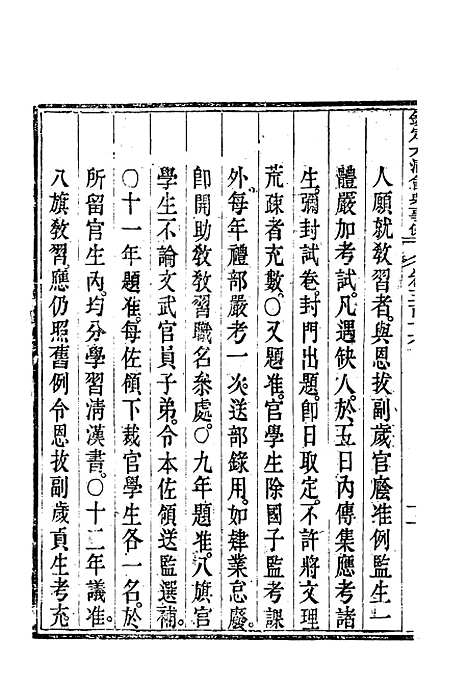 人願就教習者與恩拔副歲官廕准例監生一
體嚴加考試凡遇缺人於五日內傳集應考諸
生彌封試卷封門出題卽日取定不許將文理
荒疎者充數○又題准官學生除國子監考課
外每年禮部嚴考一次送部錄用如肄業怠廢
卽開助敎敎習職名叅處○九年題准八旗官
學生不論文武官員子弟令本佐領送監選補
○十一年題准每佐領下裁官學生各一名於
所留官生內均分學習淸漢書○十二年議准
八旗敎習應仍照舊例令恩拔副歲貢生考充